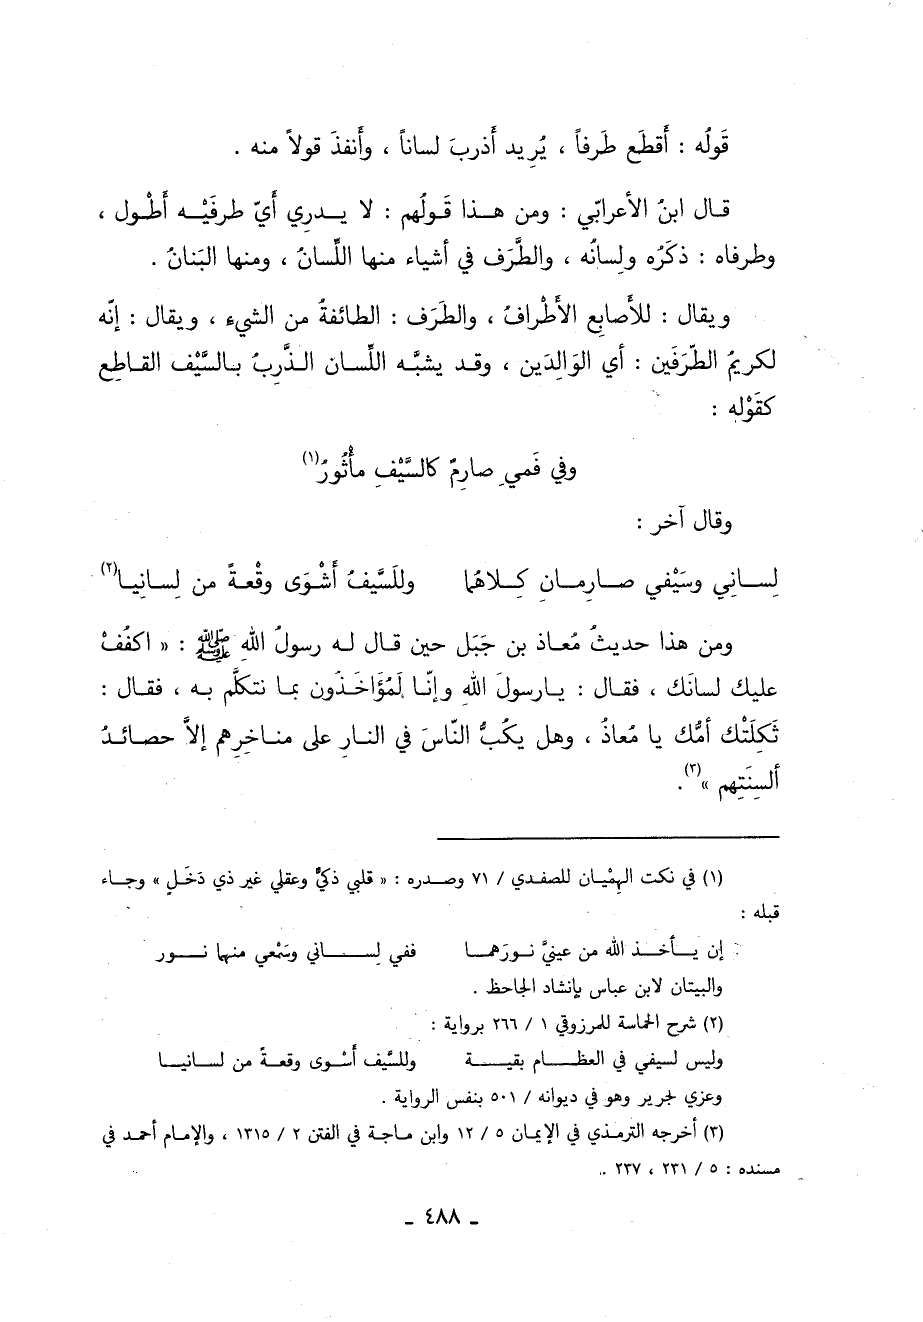 قَولُه : أَقطَع طَرفاً ، يُرِيد أَذربَ لساناً ، وأَنفذَ قولاً منه .
قـال ابنُ الأعرابّي : ومن هـذا قَـولُهم : لا يـدري أَيّ طرفَيْـه أَطْـول ،
وطرفاه : ذكَرُه ولِسانُه ، والطَّرَف في أشياء منها اللِّسانُ ، ومنها البَنانُ .
ويقال : للأَصابع الأَطْرافُ ، والطَرَف : الطائفةُ من الشيء ، ويقال : إنّه
لكريمُ الطَّرَفَين : أي الوَالِدَين ، وقـد يشبَّـه اللِّسـان الـذَّرِبُ بـالسَّيْف القـاطِع
كقَوْلِه :
وفي فَمي صارِمٌ كالسَّيْفِ مأْثُورُ(١)
وقال آخر :
لِسـاني وسَيْفي صـارِمـان كِـلاهُما وللَسَّيفُ أَشْوَى وقْعـةً من لِسـانيـا(٢)
ومن هذا حديثُ مُعـاذ بن جَبَل حين قـال لـه رسولُ اللهِ ﷺ : « اكفُفْ
عليك لسانَك ، فقـال : يـارسولَ اللهِ وإنّـا لَمُؤَاخَـذُون بمـا نتكلَّم بـه ، فقـال :
ثَكِلَتْك أمُّك يا مُعاذُ ، وهل يكُبُّ النّاسَ في النـار على منـاخِرِهم إلاَّ حصـائـدُ
أَلسِنَتِهم »(٣).
(١) في نكت الهِمْيـان للصفـدي / ٧١ وصـدره : « قلبي ذكيٌّ وعقلي غير ذي دَخَلٍ » وجـاء
قبله :
إن يـأخـذ الله من عينيَّ نـورَهمـا ففي لِـسـاني وسَمْعي منهـا نـور
والبيتان لابن عباس بإنشاد الجاحظ .
(٢) شرح الحماسة للمرزوقي ١ / ٢٦٦ برواية :
وليس لسيفي في العظـام بقيـة وللسَّيف أشـوى وقعـةً من لسـانيـا
وعزي لجرير وهو في ديوانه / ٥٠١ بنفس الرواية .
(٣) أخرجه الترمذي في الإيمان ٥ / ١٢ وابن مـاجـة في الفتن ٢ / ١٣١٥ ، والإمـام أحمـد في
مسنده : ٥ / ٢٣١ ، ٢٣٧ ..
ـ ٤٨٨ ـ